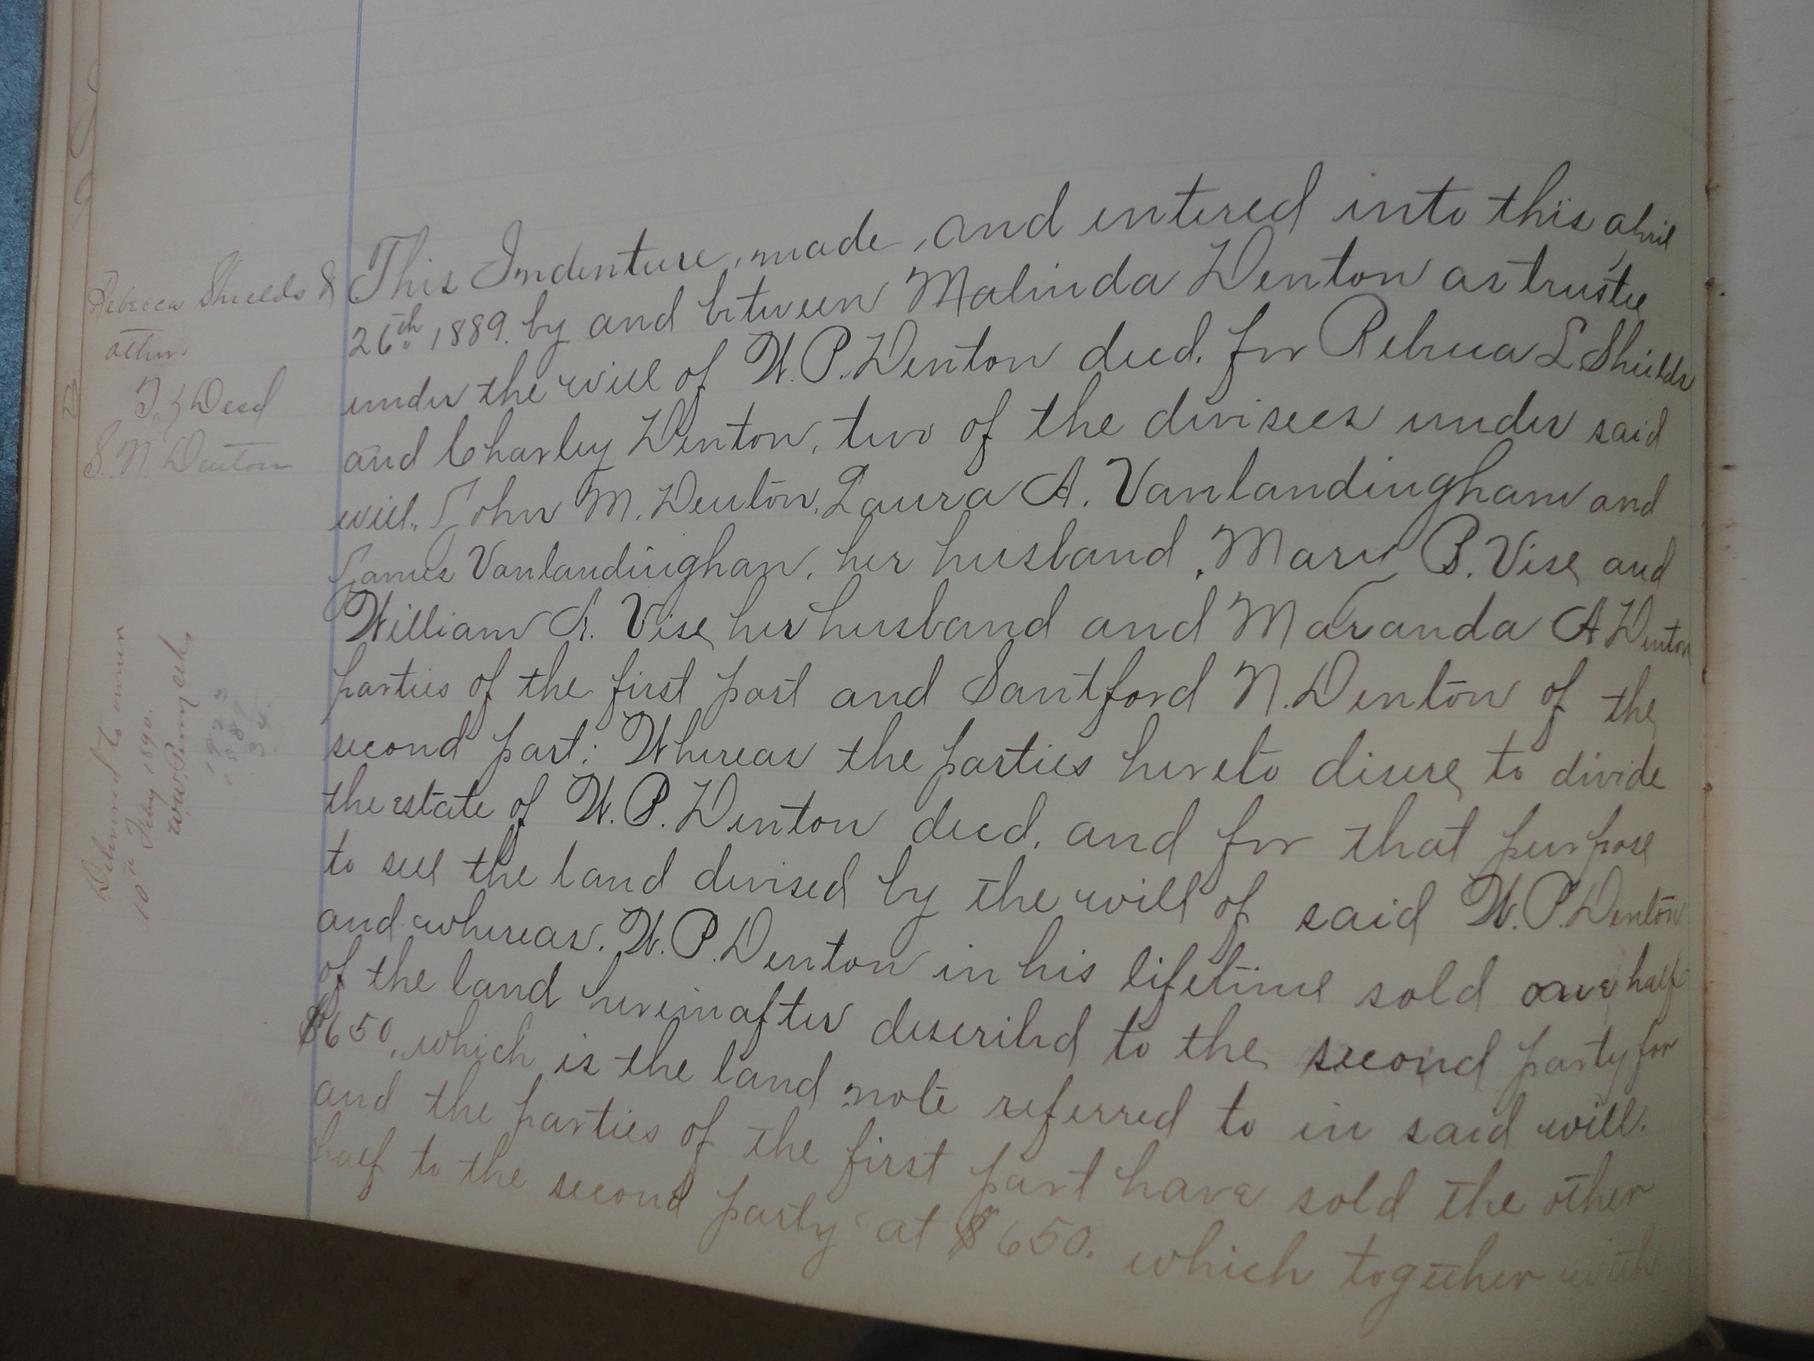 Rebecca Shields &
others
T. } Deed
S. N. Denton
Delivered to owner
10th Feby 1890.
This Indenture, made, and entered into this april
26th, 1889. by and between Malinda Denton as trustee
under the will of W. P. Denton decd. for Rebecca L Shields
and Charley Denton, two of the divisees under said
will. John M. Denton, Laura A. Vanlandingham and
James Vanlandingham, her husband, Mary B. Vise and
William A. Vise her husband and Maranda A Denton
parties of the first part and Santford N. Denton of the
second part: Whereas the parties hereto disire to divide
the estate of W. P. Denton decd. and for that purpose
to sell the land devised by the will of said W. P. Denton
and whereas. W. P. Denton in his lifetime sold one half
of the land hereinafter described to the second party for
$650. which is the land note referred to in said will.
and the parties of the first part have sold the other
half to the second party at $650. which together with